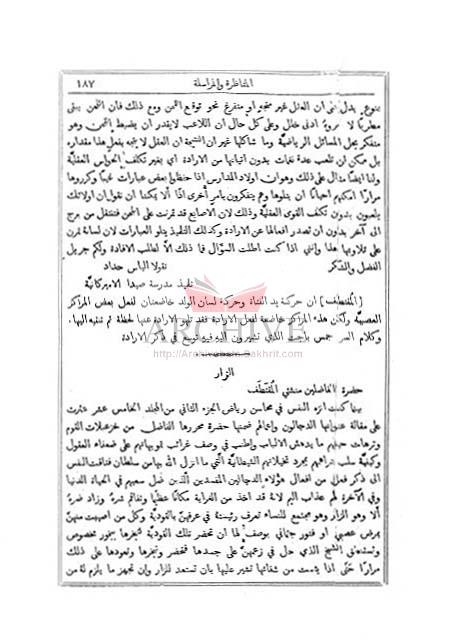 المناظرة والمراسلة ١٨٧
بنوع يدل على ان العقل غير متجه او متفرغ نحو توقع النحن ومع ذلك فان النحن يبقى
مطربًا لا يعروهُ ادنى خلل وعلى كل حال ان اللاعب لا يقدر ان يضبط النحن وهو
متفكر بحل المسائل الرياضيَّة وما شاكلها غير ان النتيجة ان العقل لا يتجه بفعل هذا مقداره
بل يمكن ان تلعب عدة نغمات بدون اتيانها من الارادة اي بغير تكلف الحواس العقليَّة
ولنا ايضًا مثال على ذلك وهو ان اولاد المدارس اذا حفظوا بعض عبارات غيبًا وكرروها
مرارًا امكنهم احيانًا ان يتلوها وهم يتفكرون بامر آخر اذًا ألا يمكننا ان نقول ان اولئك
يلعبون بدون تكلف القوى العقليَّة وذلك لان الاصابع قد تمرنت على النحن فتنتقل من برج
الى آخر بدون ان تصدر افعالها عن الارادة وكذلك التلميذ يتلو العبارات لان لسانه تمرن
على تلاوتها هذا وانني اذا كنت اطلت السؤال فما ذلك الَّا لطلب الافادة ولكم جزيل
الفضل والشكر نقولا الياس حداد
تلميذ مدرسة صيدا الاميركانيَّة
[المقتطف] ان حركة يد الفتاة وحركة لسان الولد خاضعتان لفعل بعض المراكز
العصبيَّة ولكن هذه المراكز خاضعة لفعل الارادة فقد تلهو الارادة عنها لحظة ثم تنتبه اليها.
وكلام السر جمس باجت الذي تشيرون اليه فيه توسع في ذكر الارادة
ARCHIVE
http://Archivebeta.Sakhrit.com
الزار
حضرة الفاضلين منشئي المقتطف
بينما كنت انزه النفس في محاسن رياض الجزء الثاني من المجلد الخامس عشر عثرت
على مقالة عنوانها الدجالون واعمالهم ضمنها حضرة محررها الفاضل من خزعبلات القوم
وترهات حيلهم ما يدهش الالباب واطنب في وصف غرائب تمويهاتهم على ضعفاء العقول
وكيفيَّة سلب دراهمهم بمجرد تخيلاتهم الشيطانيَّة التي ما انزل الله بها من سلطان فتاقت النفس
الى ذكر فعال من افعال هؤلاء الدجالين المفسدين الذين ضل سعيهم في الحياة الدنيا
وفي الآخرة لم عذاب اليم لانهُ قد اخذ من الغرابة مكانًا عظيمًا وتفاقم شرهُ وزاد ضرهُ
ألا وهو الزار وهو مجتمع للنساء تعرف رئيستهُ في عرفهنَّ بالقوديَّة وكل من اصيبت منهنَّ
بمرض عصبي او فتور جثماني يوصف لها ان تحضر تلك القوديَّة فتبخرها ببخور مخصوص
وتستدعي الشيخ الذي حل في زعمهنَّ على جسدها فتحضر وتبخرها وتعودها على ذلك
مرارًا حتى اذا يئست من شفائها تشير عليها بان تستعد للزار وان تجهز ما يلزم لهُ من